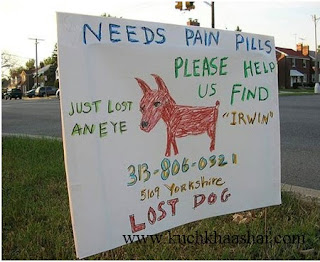 NEEDS PAIN PILLS
PLEASE HELP
US FIND
"IRWIN"
JUST LOST
AN EYE
313-806-0321
5109 YORKSHIRE
LOST DOG
www.kuchkhaashai.com